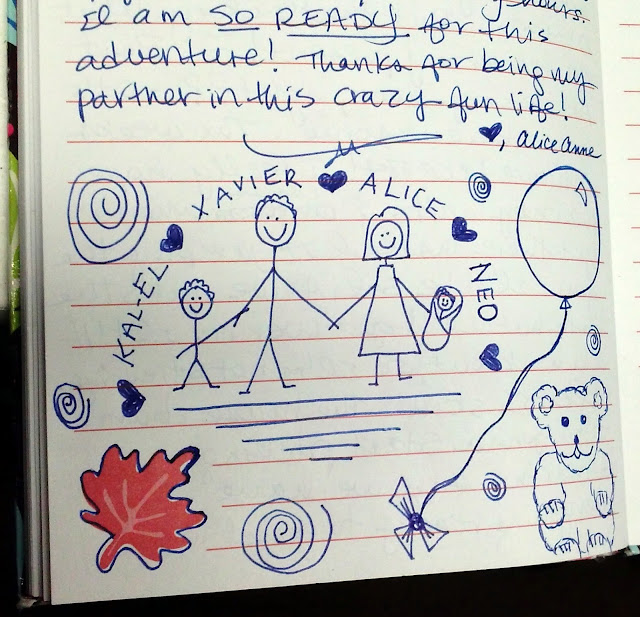 hours.
I am SO READY for this
adventure! Thanks for being my
partner in this crazy fun life!
, Alice Anne
XAVIER ALICE
KAL-EL
NEO